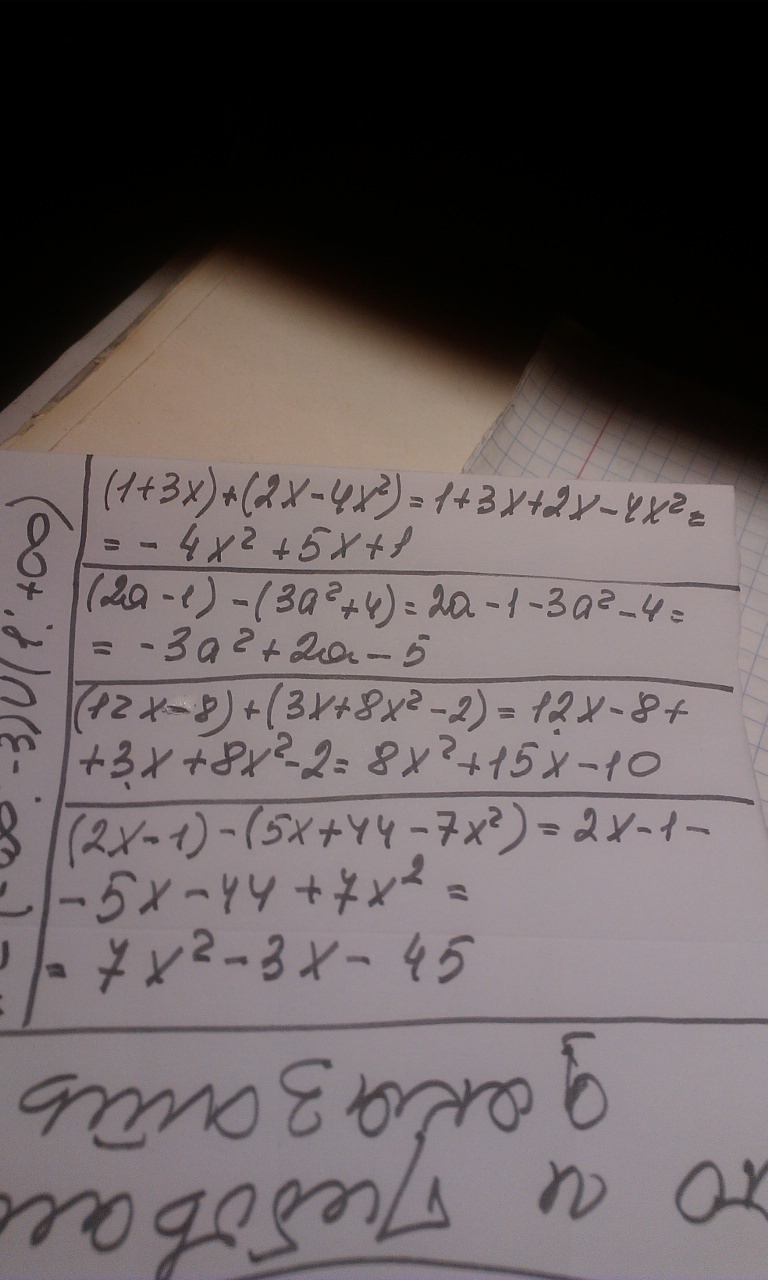 (1+3x)+(2x-4x²)=1+3x+2x-4x²=
=-4x²+5x+1
(2a-1)-(3a²+4)=2a-1-3a²-4=
=-3a²+2a-5
(12x-8)+(3x+8x²-2)=12x-8+
+3x+8x²-2=8x²+15x-10
(2x-1)-(5x+44-7x²)=2x-1-
-5x-44+7x²=
=7x²-3x-45
-3)∪(1;+∞)
то и требова
доказать